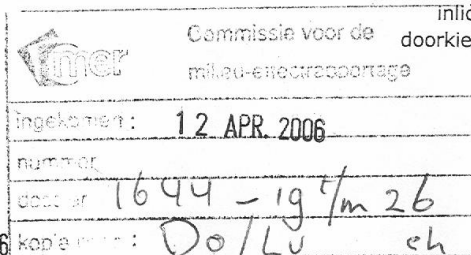 mer
Commissie voor de
milieu-effectrapportage
inlic
doorkie
ingekomen : 12 APR. 2006
nummer
dossier 1644 - 19 t/m 26
kopie naar : Do/Lu eh
6